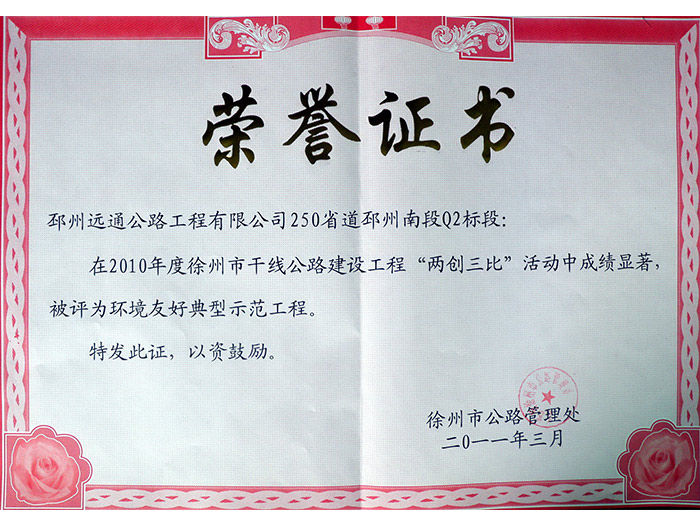 荣誉证书
邳州远通公路工程有限公司250省道邳州南段Q2标段:
在2010年度徐州市干线公路建设工程“两创三比”活动中成绩显著,
被评为环境友好典型示范工程。
特发此证，以资鼓励。
徐州市公路管理处
二O一一年三月